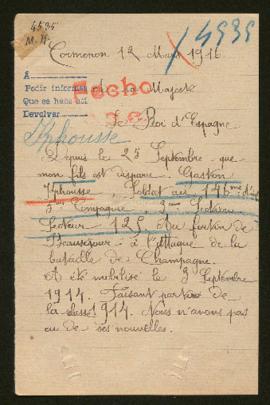 4535
4535
Cormonon 12 Mars 1916
A
Pedir informes
Que se hans
Devolver
Fecho
Majesté
Le Roi d'Espagne
Yphousse
Depuis le 25 Septembre que
mon fils est disparu. Gaston
Yphousse Soldat au 146me
3me Compagnie 2me Section
Secteur 125 Au fortin de
Beauséjour à l'attaque de la
bataille de Champagne.
Et été mobilisé le 3 Septembre
1914. Faisant partie de
la classe 1914. Nous n'avons pas
eu de ses nouvelles.